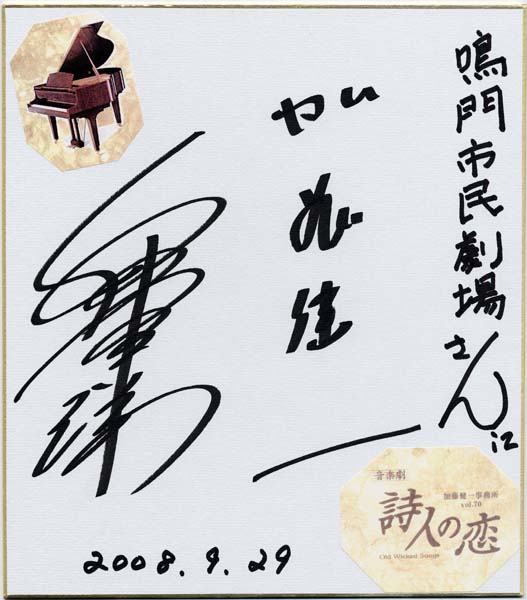 鳴門市民劇場さん江
加藤健一
2008.9.29
音楽劇
加藤健一事務所
vol.70
詩人の恋
Old Wicked Songs